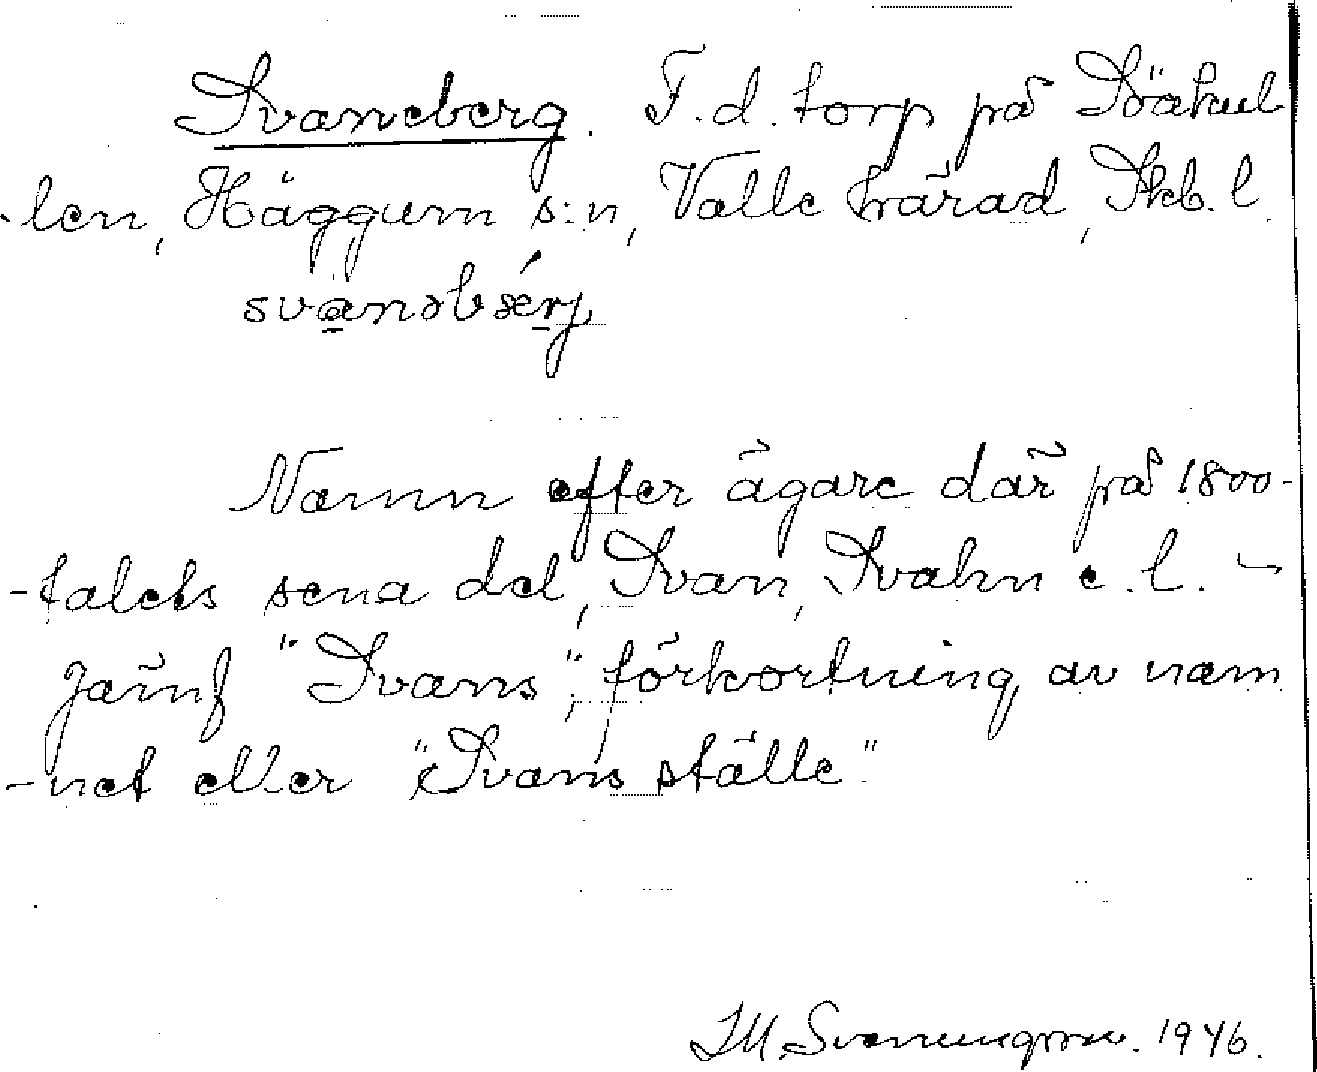 Svaneberg. F.d. torp på Stäkul
-len, Häggum s:n, Valle härad, Skb. l.
svanəbærj
Namn efter ägare där på 1800-
-talets sena del, Svan, Svahn e. l. –
Jämf "Svans", förkortning av nam
-net eller "Svans ställe"
Svenungsson. 1946.